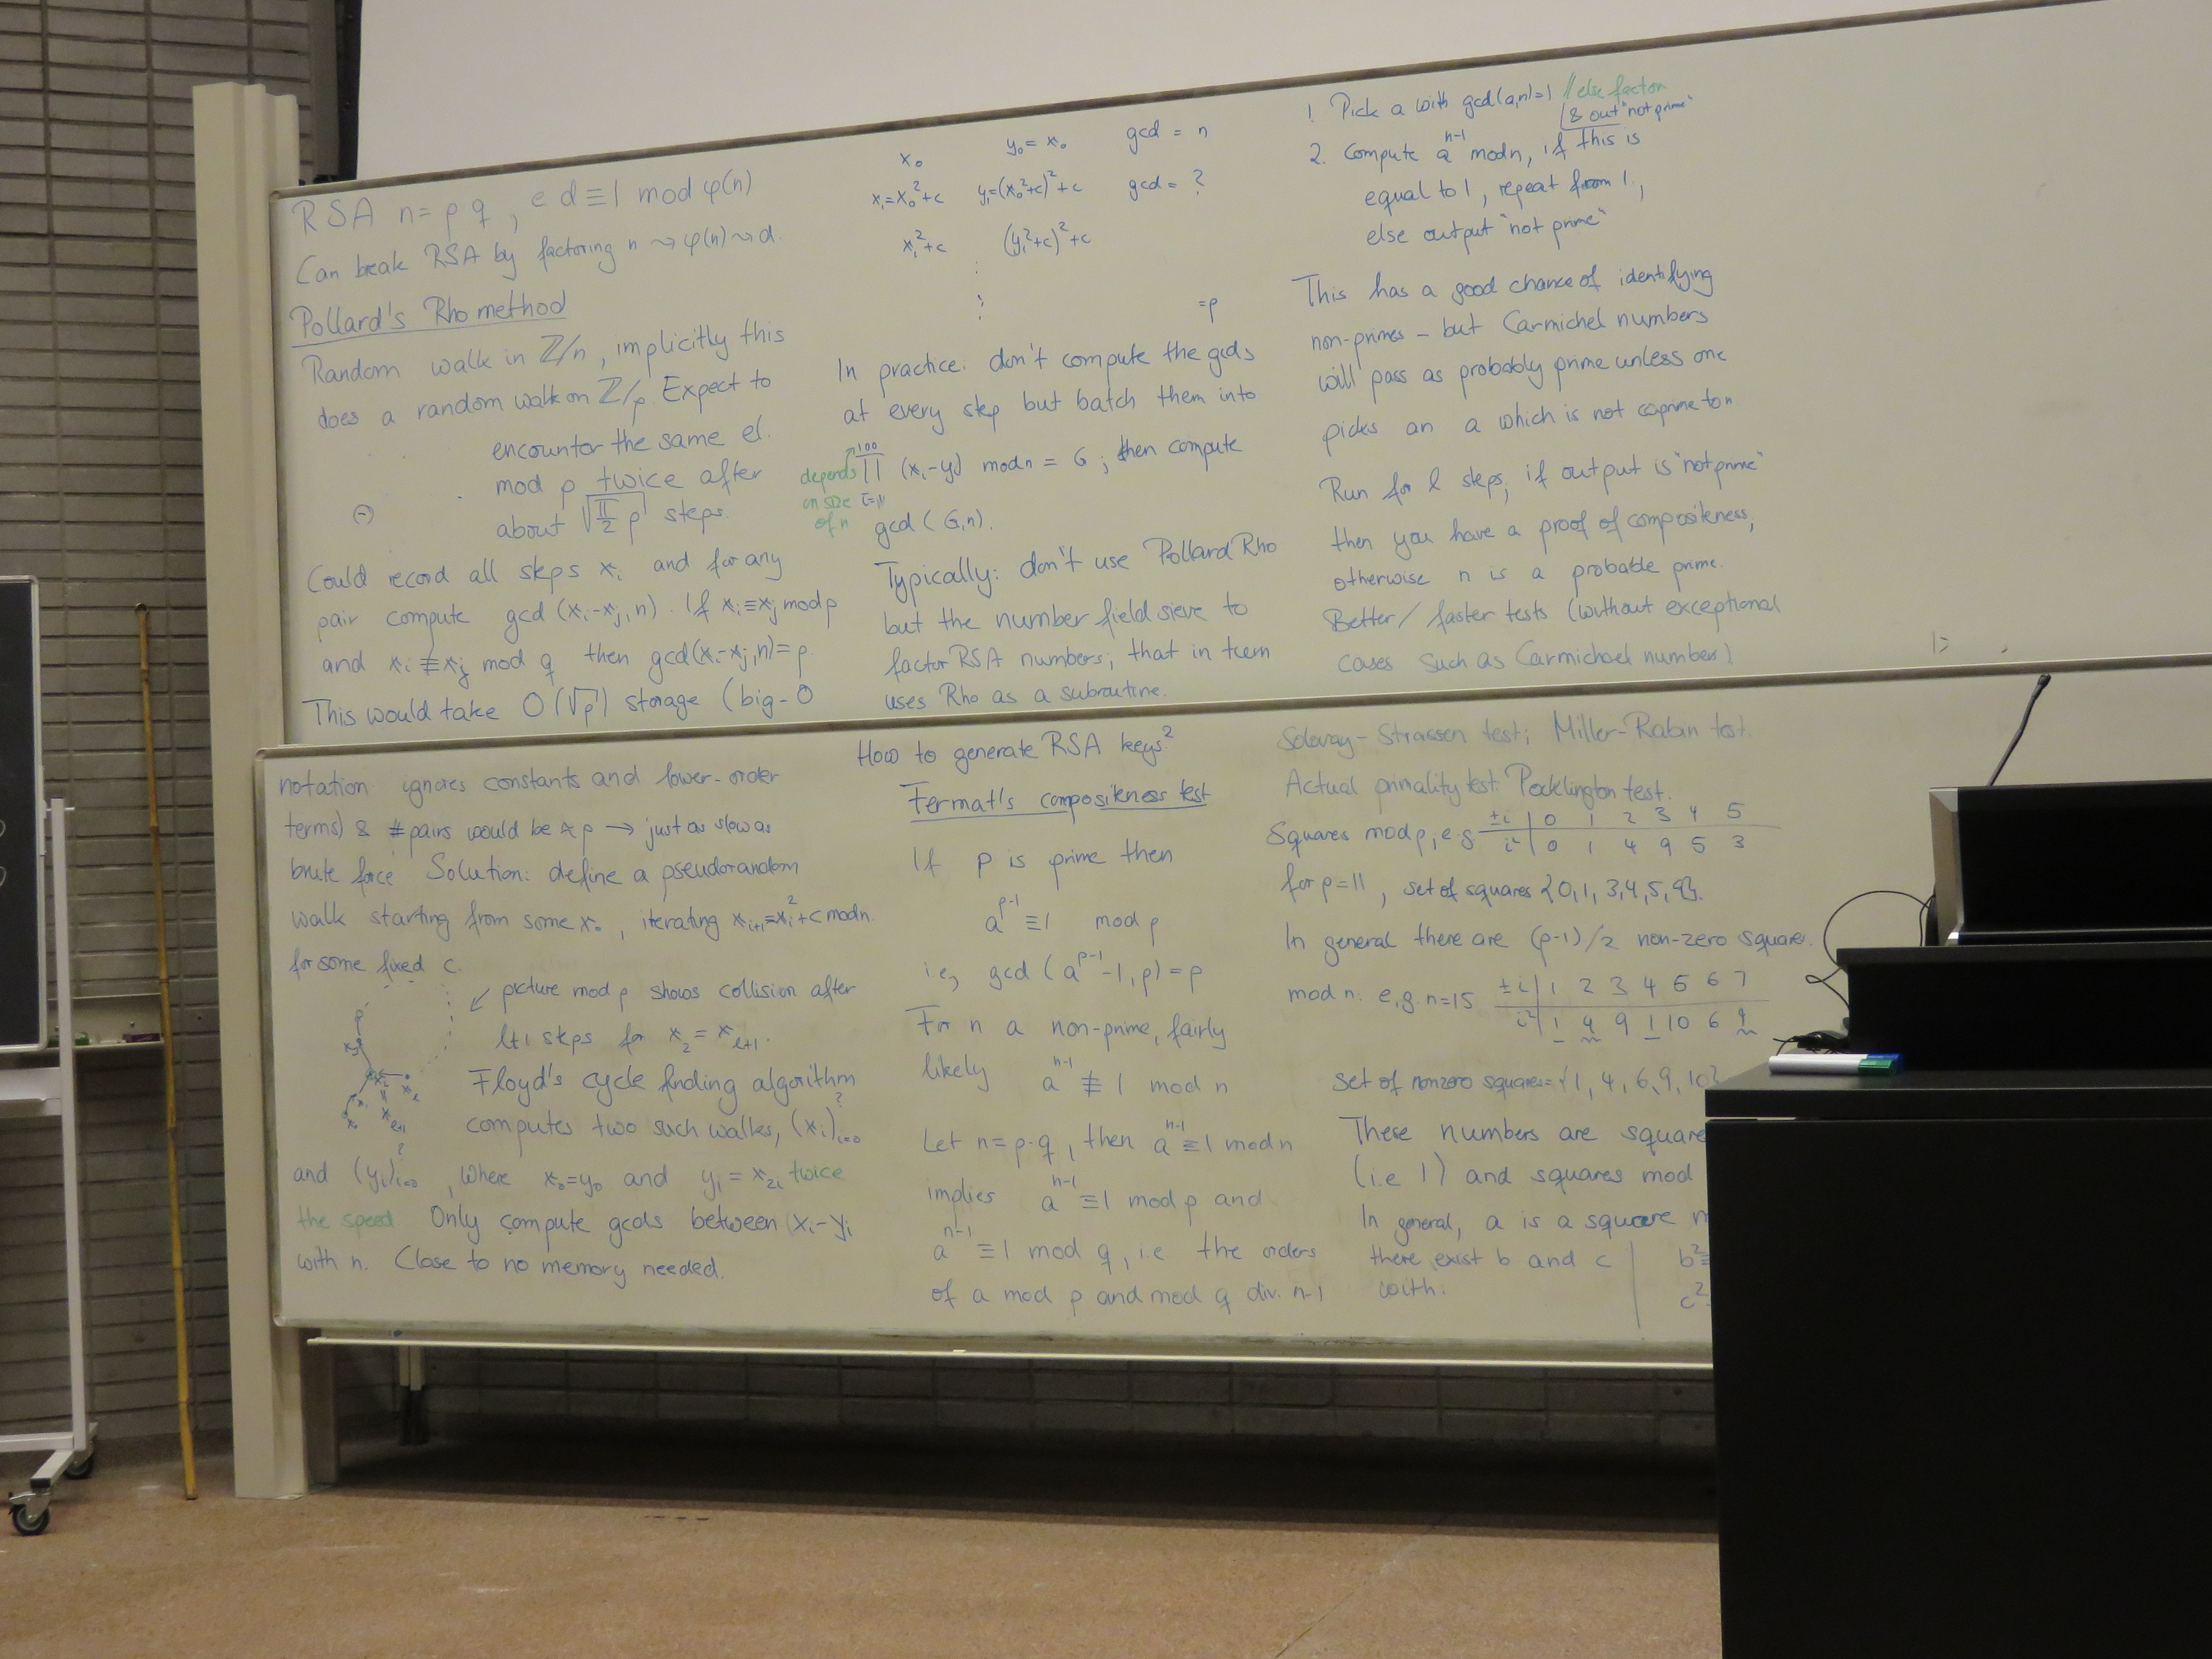 RSA n = p q , e d ≡ 1 mod φ(n)
Can break RSA by factoring n ⇝ φ(n) ⇝ d.
Pollard's Rho method
Random walk in ℤ/n , implicitly this
does a random walk on ℤ/p. Expect to
encounter the same el.
mod p twice after
about √(π/2 p) steps.
Could record all steps xᵢ and for any
pair compute gcd (xᵢ-xⱼ, n). If xᵢ≡xⱼ mod p
and xᵢ ≢ xⱼ mod q then gcd(xᵢ-xⱼ,n)=p
This would take O(√p) storage (big-O
notation ignores constants and lower-order
terms) & #pairs would be ≈ p → just as slow as
brute force Solution: define a pseudorandom
walk starting from some x₀ , iterating xᵢ₊₁=xᵢ²+c mod n.
for some fixed c.
↙ picture mod p shows collision after
l+1 steps for x₂ = xₗ₊₁.
Floyd's cycle finding algorithm
computes two such walks, (xᵢ)ᵢ₌₀^?
and (yᵢ)ᵢ₌₀^? , where x₀=y₀ and yᵢ = x₂ᵢ twice
the speed Only compute gcds between xᵢ-yᵢ
with n. Close to no memory needed.
x₀ y₀ = x₀ gcd = n
x₁=x₀²+c y₁=(x₀²+c)²+c gcd = ?
x₁²+c (y₁²+c)²+c
⋮
=p
In practice: don't compute the gcds
at every step but batch them into
∏ᵢ₌₁¹⁰⁰ (xᵢ-yᵢ) mod n = G ; then compute
depends
on size
of n
gcd (G,n).
Typically: don't use Pollard Rho
but the number field sieve to
factor RSA numbers; that in turn
uses Rho as a subroutine.
How to generate RSA keys?
Fermat's compositeness test
If p is prime then
a^(p-1) ≡ 1 mod p
i.e, gcd (a^(p-1)-1, p) = p
For n a non-prime, fairly
likely a^(n-1) ≢ 1 mod n
Let n=p·q , then a^(n-1) ≡ 1 mod n
implies a^(n-1) ≡ 1 mod p and
a^(n-1) ≡ 1 mod q, i.e the orders
of a mod p and mod q div. n-1
1. Pick a with gcd(a,n)=1 // else factor
& out "not prime"
2. Compute a^(n-1) mod n, if this is
equal to 1, repeat from 1.,
else output "not prime"
This has a good chance of identifying
non-primes – but Carmichel numbers
will pass as probably prime unless one
picks an a which is not coprime to n
Run for l steps, if output is "not prime"
then you have a proof of compositeness,
otherwise n is a probable prime.
Better / faster tests (without exceptional
cases such as Carmichael numbers)
Solovay-Strassen test; Miller-Rabin test.
Actual primality test: Pocklington test.
Squares mod p, e.g ±i | 0 1 2 3 4 5
i² | 0 1 4 9 5 3
for p=11 , set of squares {0,1, 3,4,5,9}.
In general there are (p-1)/2 non-zero squares.
mod n: e.g. n=15 ±i | 1 2 3 4 5 6 7
i² | 1 4 9 1 10 6 4
set of nonzero squares={1, 4, 6, 9, 10}
These numbers are square
(i.e 1) and squares mod
In general, a is a square
there exist b and c | b² ≡
with: | c²